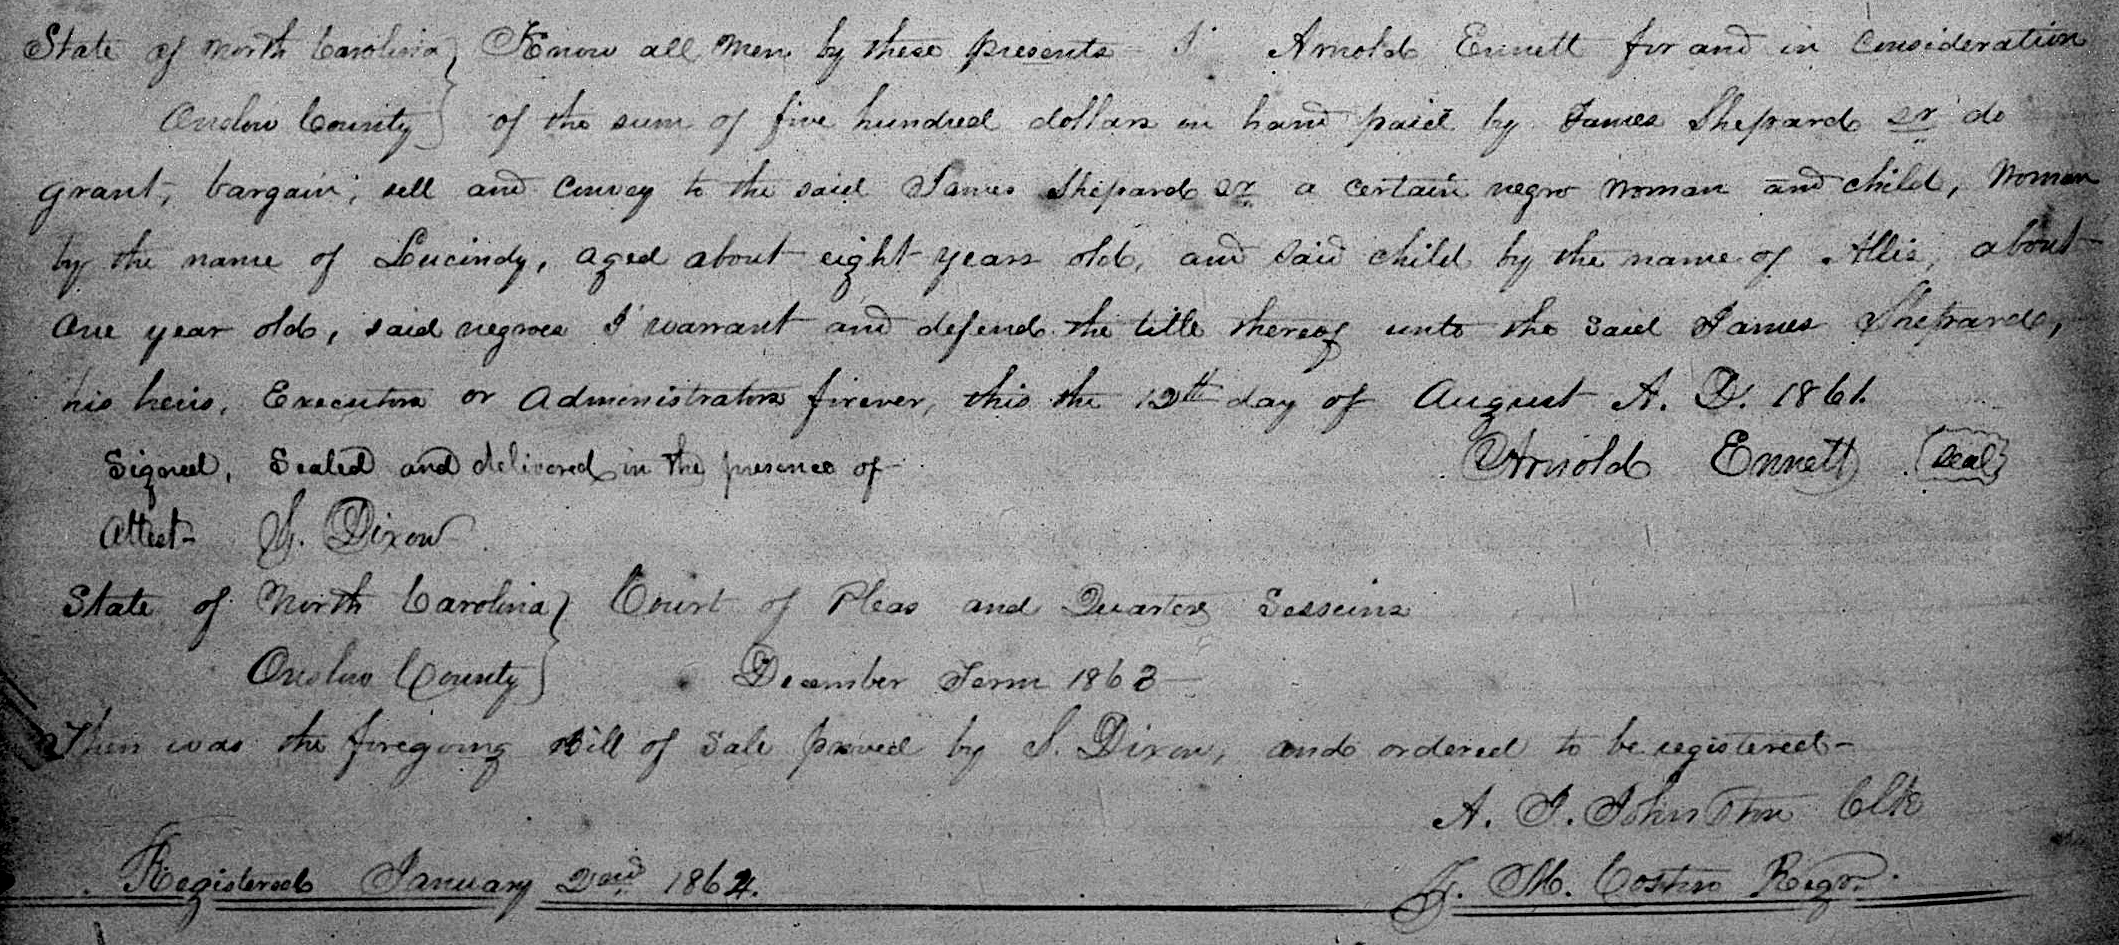 State of North Carolina } Know all Men by these presents I Arnold Ennett for and in consideration
Onslow County } of the sum of five hundred dollars in hand paid by James Shepard Sr do
grant, bargain, sell and convey to the said James Shepard Sr a certain negro woman and child, Woman
by the name of Lucindy, aged about eight years old, and said child by the name of Allis, about
one year old, said negroes I warrant and defend the title thereof unto the said James Shepard,
his heirs, Executors or Administrators forever, this the 12th day of August A. D. 1861.
Signed, Sealed and delivered in the presence of Arnold Ennett (Seal)
Attest- S. Dixon
State of North Carolina } Court of Pleas and Quarter Sessions
Onslow County } December Term 1863
Then was the foregoing Bill of Sale proved by S. Dixon, and ordered to be registered-
A. J. Johnston Clk
Registered January 2nd 1864. J. M. Costin Regr.